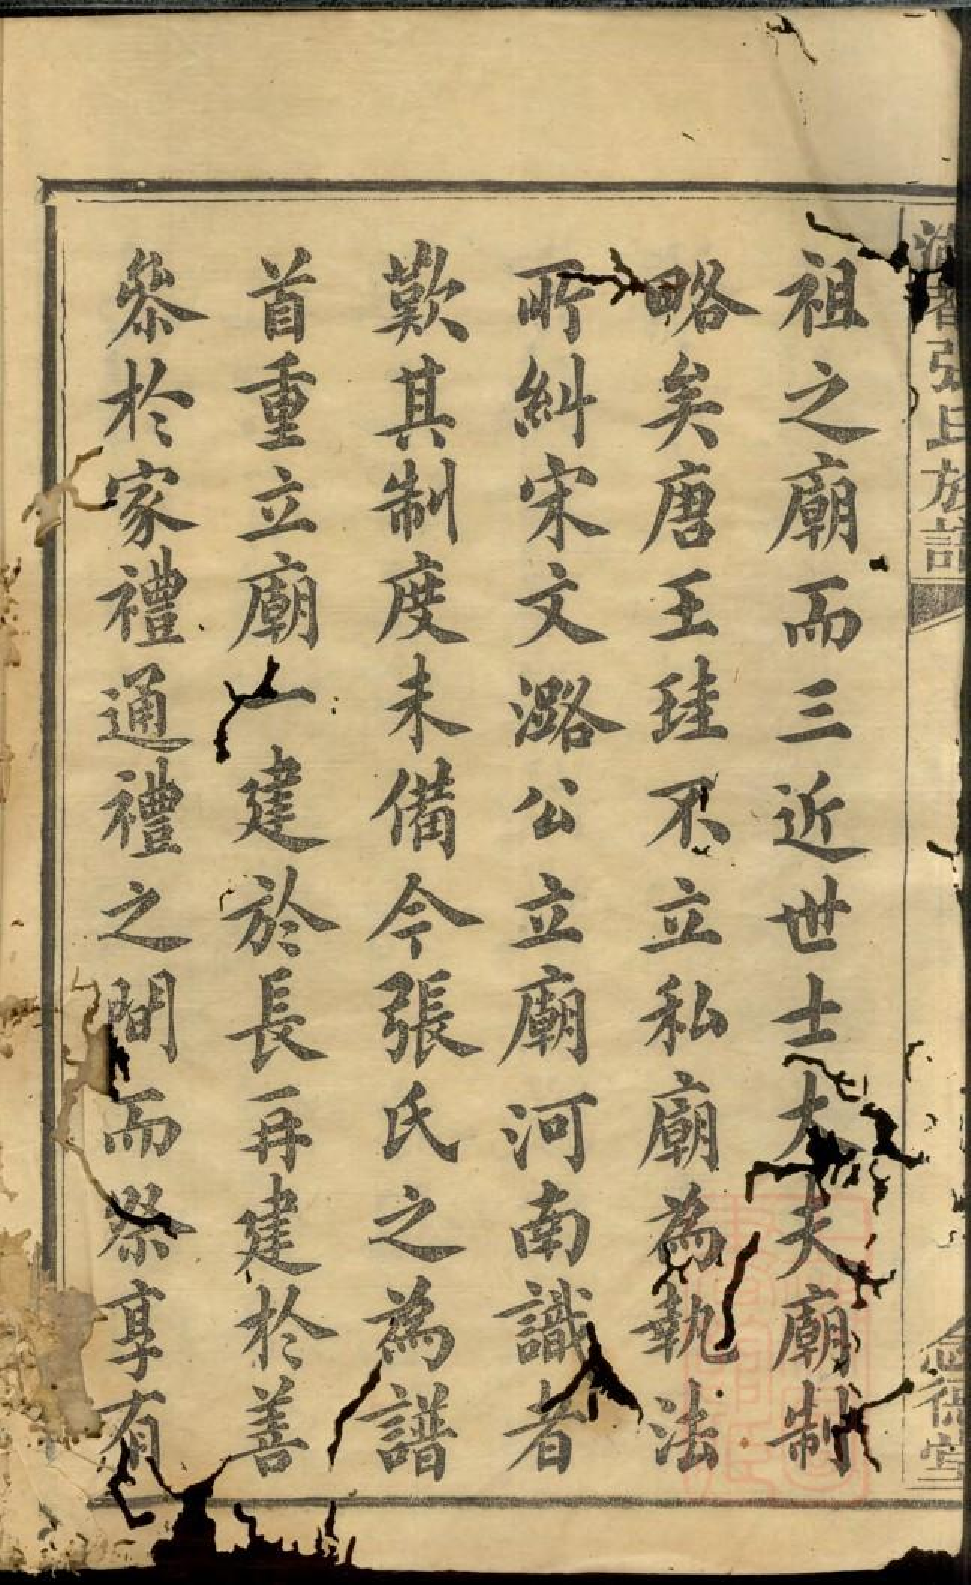 張氏族譜
德堂
祖之廟而三近世士大夫廟制
略矣唐王珪不立私廟為執法
所糾宋文潞公立廟河南識者
歎其制度未備今張氏之為譜
首重立廟一建於長再建於善
叅於家禮通禮之間而祭享有